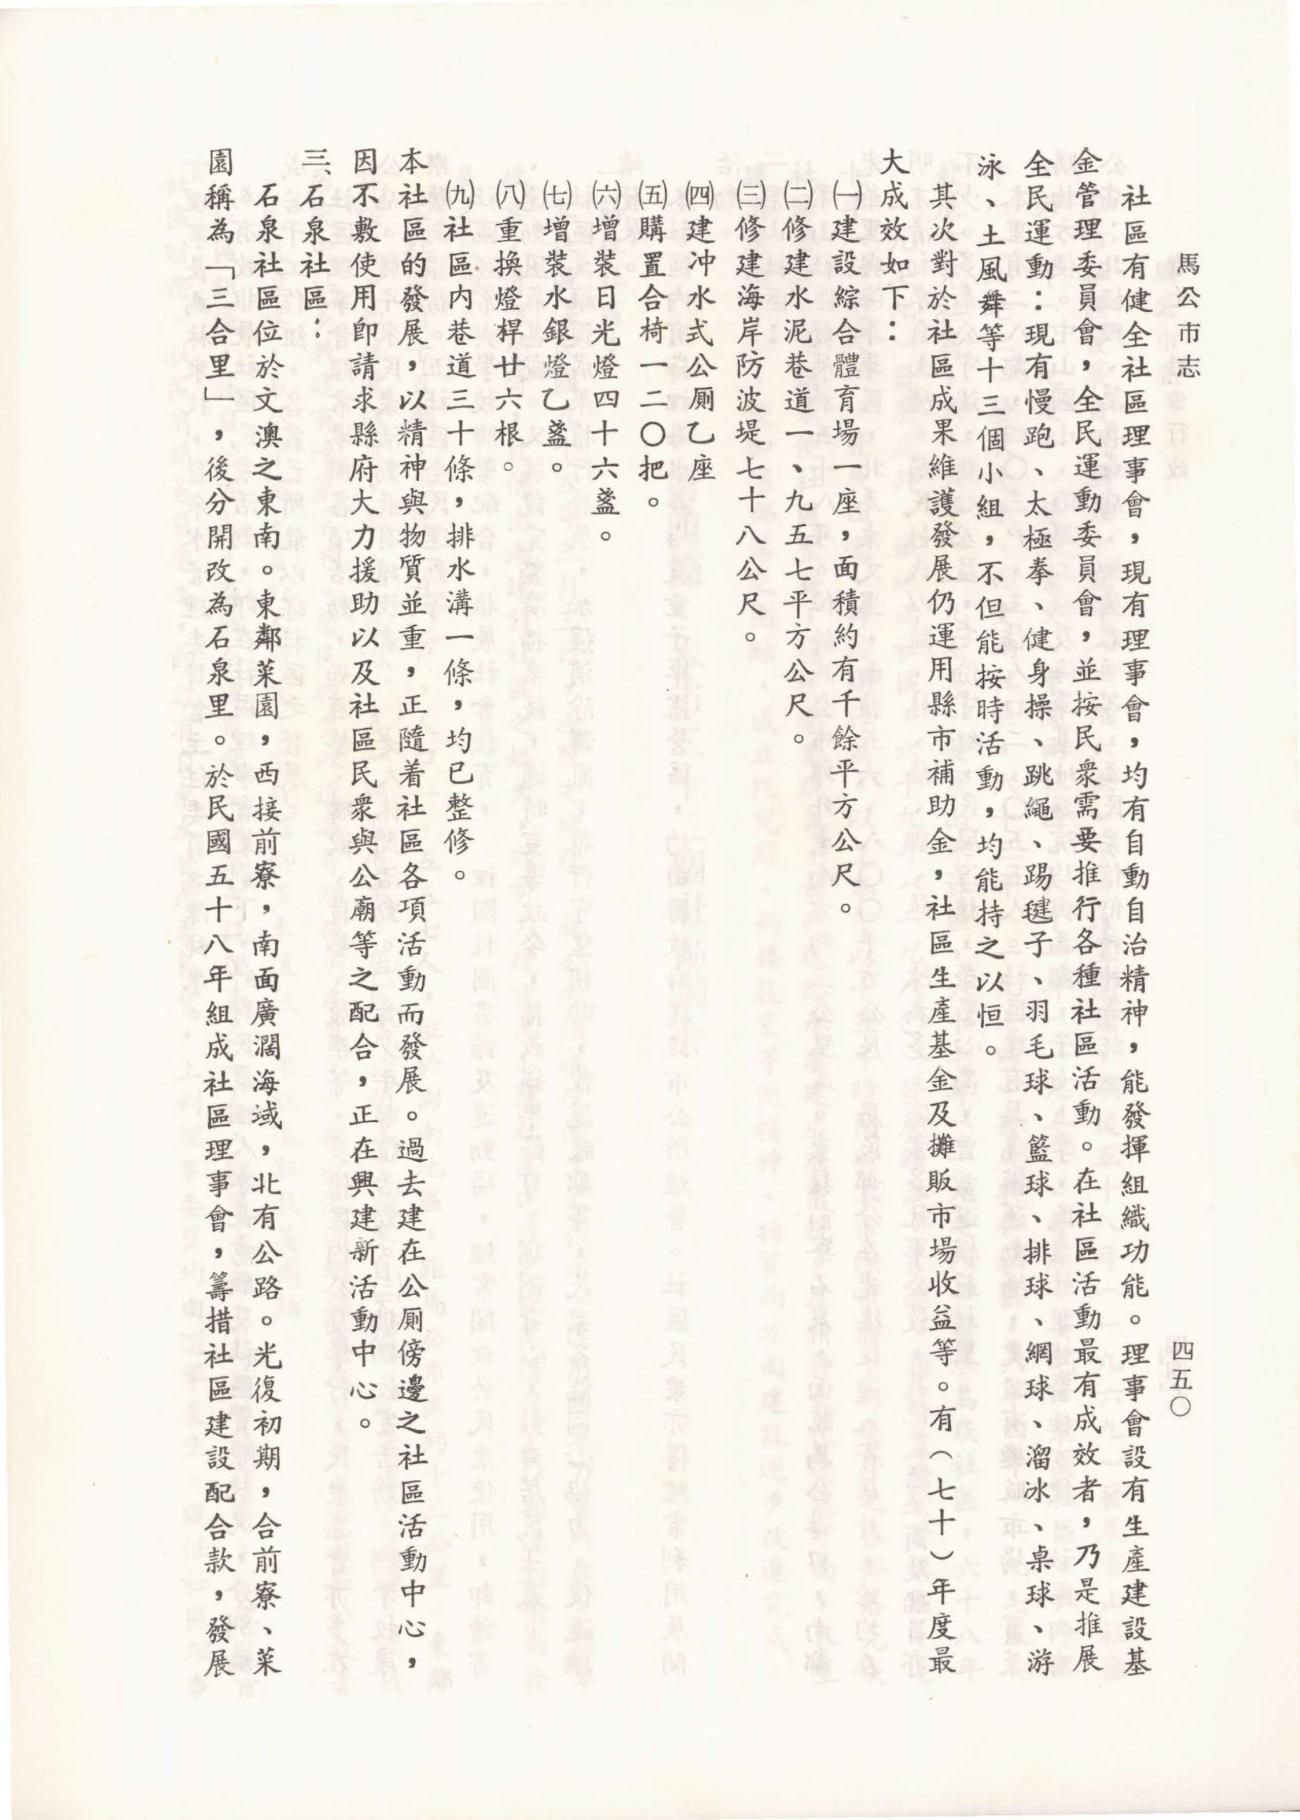 馬公市志
四五〇
社區有健全社區理事會，現有理事會，均有自動自治精神，能發揮組織功能。理事會設有生產建設基
金管理委員會，全民運動委員會，並按民衆需要推行各種社區活動。在社區活動最有成效者，乃是推展
全民運動：現有慢跑、太極拳、健身操、跳繩、踢毽子、羽毛球、籃球、排球、網球、溜冰、桌球、游
泳、土風舞等十三個小組，不但能按時活動，均能持之以恒。
其次對於社區成果維護發展仍運用縣市補助金，社區生產基金及攤販市場收益等。有（七十）年度最
大成效如下：
㈠建設綜合體育場一座，面積約有千餘平方公尺。
㈡修建水泥巷道一、九五七平方公尺。
㈢修建海岸防波堤七十八公尺。
㈣建冲水式公厠乙座
㈤購置合椅一二〇把。
㈥增裝日光燈四十六盞。
㈦增裝水銀燈乙盞。
㈧重換燈桿廿六根。
㈨社區內巷道三十條，排水溝一條，均已整修。
本社區的發展，以精神與物質並重，正隨着社區各項活動而發展。過去建在公厠傍邊之社區活動中心，
因不敷使用卽請求縣府大力援助以及社區民衆與公廟等之配合，正在興建新活動中心。
三、石泉社區：
石泉社區位於文澳之東南。東鄰菜園，西接前寮，南面廣濶海域，北有公路。光復初期，合前寮、菜
園稱為「三合里」，後分開改為石泉里。於民國五十八年組成社區理事會，籌措社區建設配合款，發展